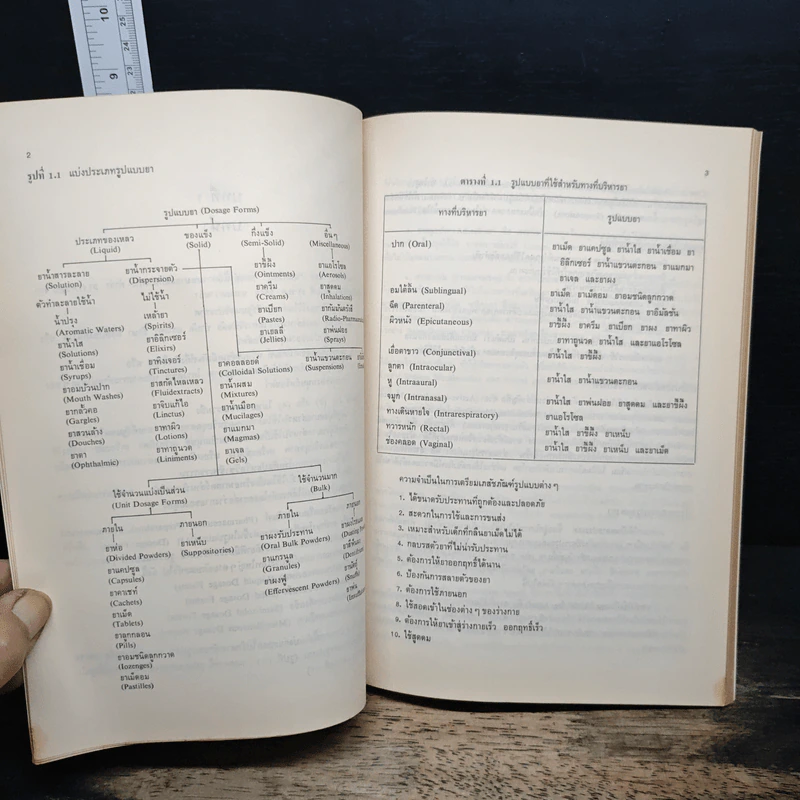 10
9
25
24
23
2
รูปที่ 1.1 แบ่งประเภทรูปแบบยา
รูปแบบยา (Dosage Forms)
ประเภทของเหลว
(Liquid)
ของแข็ง
(Solid)
กึ่งแข็ง
(Semi-Solid)
อื่นๆ
(Miscellaneous)
ยาน้ำสารละลาย
(Solution)
ยาน้ำกระจายตัว
(Dispersion)
ตัวทำละลายใช้น้ำ
ไม่ใช้น้ำ
น้ำปรุง
(Aromatic Waters)
ยาน้ำใส
(Solutions)
ยาน้ำเชื่อม
(Syrups)
ยาอมบ้วนปาก
(Mouth Washes)
ยากลั้วคอ
(Gargles)
ยาสวนล้าง
(Douches)
ยาตา
(Ophthalmic)
เหล้ายา
(Spirits)
ยาอิลิกเซอร์
(Elixirs)
ยาทิงเจอร์
(Tinctures)
ยาสกัดไหลเหลว
(Fluidextracts)
ยาจิบแก้ไอ
(Linctus)
ยาทาผิว
(Lotions)
ยาทาถูนวด
(Liniments)
ยาขี้ผึ้ง
(Ointments)
ยาครีม
(Creams)
ยาเปียก
(Pastes)
ยาเยลลี่
(Jellies)
ยาแอโรโซล
(Aerosols)
ยาสูดดม
(Inhalations)
ยากัมมันตรังสี
(Radio-Pharma
ยาพ่นฝอย
(Sprays)
ยาคอลลอยด์
(Colloidal Solutions)
ยาน้ำแขวนตะกอน
(Suspensions)
ยาน้ำผสม
(Mixtures)
ยาน้ำเมือก
(Mucilages)
ยาแมกมา
(Magmas)
ยาเจล
(Gels)
ใช้จำนวนแบ่งเป็นส่วน
(Unit Dosage Forms)
ใช้จำนวนมาก
(Bulk)
ภายใน
ภายนอก
ภายใน
ภายนอก
ยาห่อ
(Divided Powders)
ยาแคปซูล
(Capsules)
ยาคาเชท์
(Cachets)
ยาเม็ด
(Tablets)
ยาลูกกลอน
(Pills)
ยาอมชนิดลูกกวาด
(Lozenges)
ยาเม็ดอม
(Pastilles)
ยาเหน็บ
(Suppositories)
ยาผงรับประทาน
(Oral Bulk Powders)
ยาแกรนูล
(Granules)
ยาผงฟู่
(Effervescent Powders)
3
ตารางที่ 1.1 รูปแบบยาที่ใช้สำหรับทางที่บริหารยา
ทางที่บริหารยา รูปแบบยา
ปาก (Oral) ยาเม็ด ยาแคปซูล ยาน้ำใส ยาน้ำเชื่อม ยา
อิลิกเซอร์ ยาน้ำแขวนตะกอน ยาแมกมา
ยาเจล และยาผง
อมใต้ลิ้น (Sublingual) ยาเม็ด ยาเม็ดอม ยาอมชนิดลูกกวาด
ฉีด (Parenteral) ยาน้ำใส ยาน้ำแขวนตะกอน ยาอิมัลชัน
ผิวหนัง (Epicutaneous) ยาขี้ผึ้ง ยาครีม ยาเปียก ยาผง ยาทาผิว
ยาทาถูนวด ยาน้ำใส และยาแอโรโซล
เยื่อตาขาว (Conjunctival) ยาน้ำใส ยาขี้ผึ้ง
ลูกตา (Intraocular)
หู (Intraaural) ยาน้ำใส ยาน้ำแขวนตะกอน
จมูก (Intranasal) ยาน้ำใส ยาพ่นฝอย ยาสูดดม และยาขี้ผึ้ง
ทางเดินหายใจ (Intrarespiratory) ยาแอโรโซล
ทวารหนัก (Rectal) ยาน้ำใส ยาขี้ผึ้ง ยาเหน็บ
ช่องคลอด (Vaginal) ยาน้ำใส ยาขี้ผึ้ง ยาเหน็บ และยาเม็ด
ความจำเป็นในการเตรียมเภสัชภัณฑ์รูปแบบต่าง ๆ
1. ได้ขนาดรับประทานที่ถูกต้องและปลอดภัย
2. สะดวกในการใช้และการขนส่ง
3. เหมาะสำหรับเด็กที่กลืนยาเม็ดไม่ได้
4. กลบรสตัวยาที่ไม่น่ารับประทาน
5. ต้องการให้ยาออกฤทธิ์ได้นาน
6. ป้องกันการสลายตัวของยา
7. ต้องการใช้ภายนอก
8. ใช้สอดเข้าในช่องต่าง ๆ ของร่างกาย
9. ต้องการให้ยาเข้าสู่ร่างกายเร็ว ออกฤทธิ์เร็ว
10. ใช้สูดดม